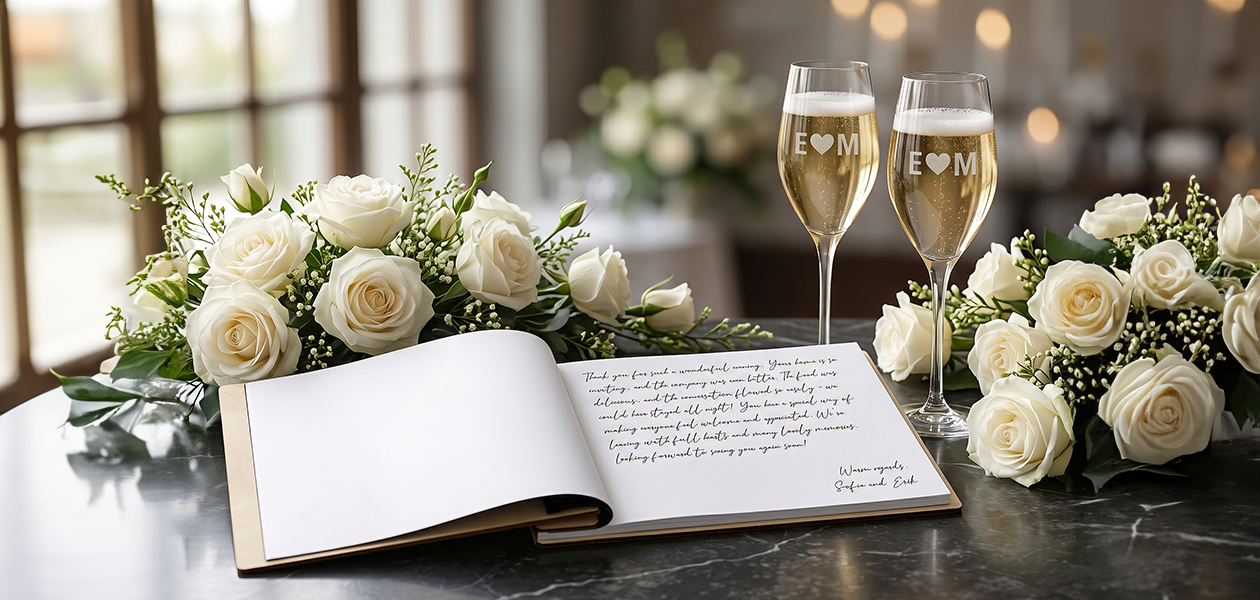 E♥M
E♥M
Thank you for such a wonderful evening. Your home is so
inviting, and the company was even better. The food was
delicious, and the conversation flowed so easily - we
could have stayed all night! You have a special way of
making everyone feel welcome and appreciated. We're
leaving with full hearts and many lovely memories.
Looking forward to seeing you again soon!
Warm regards,
Sofia and Erik